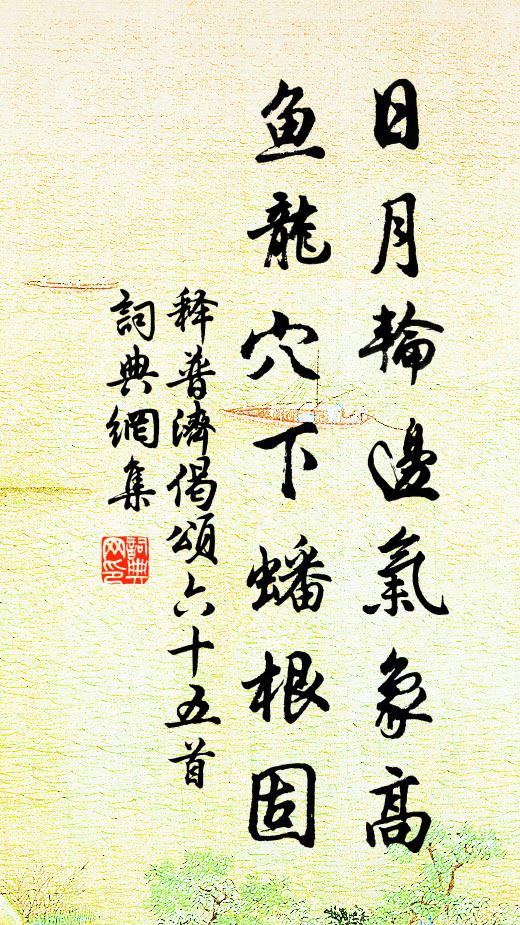 日月輪邊氣象高
鱼龍穴下蟠根固
释普濟偈頌六十五首
詞典網集
詞典网印